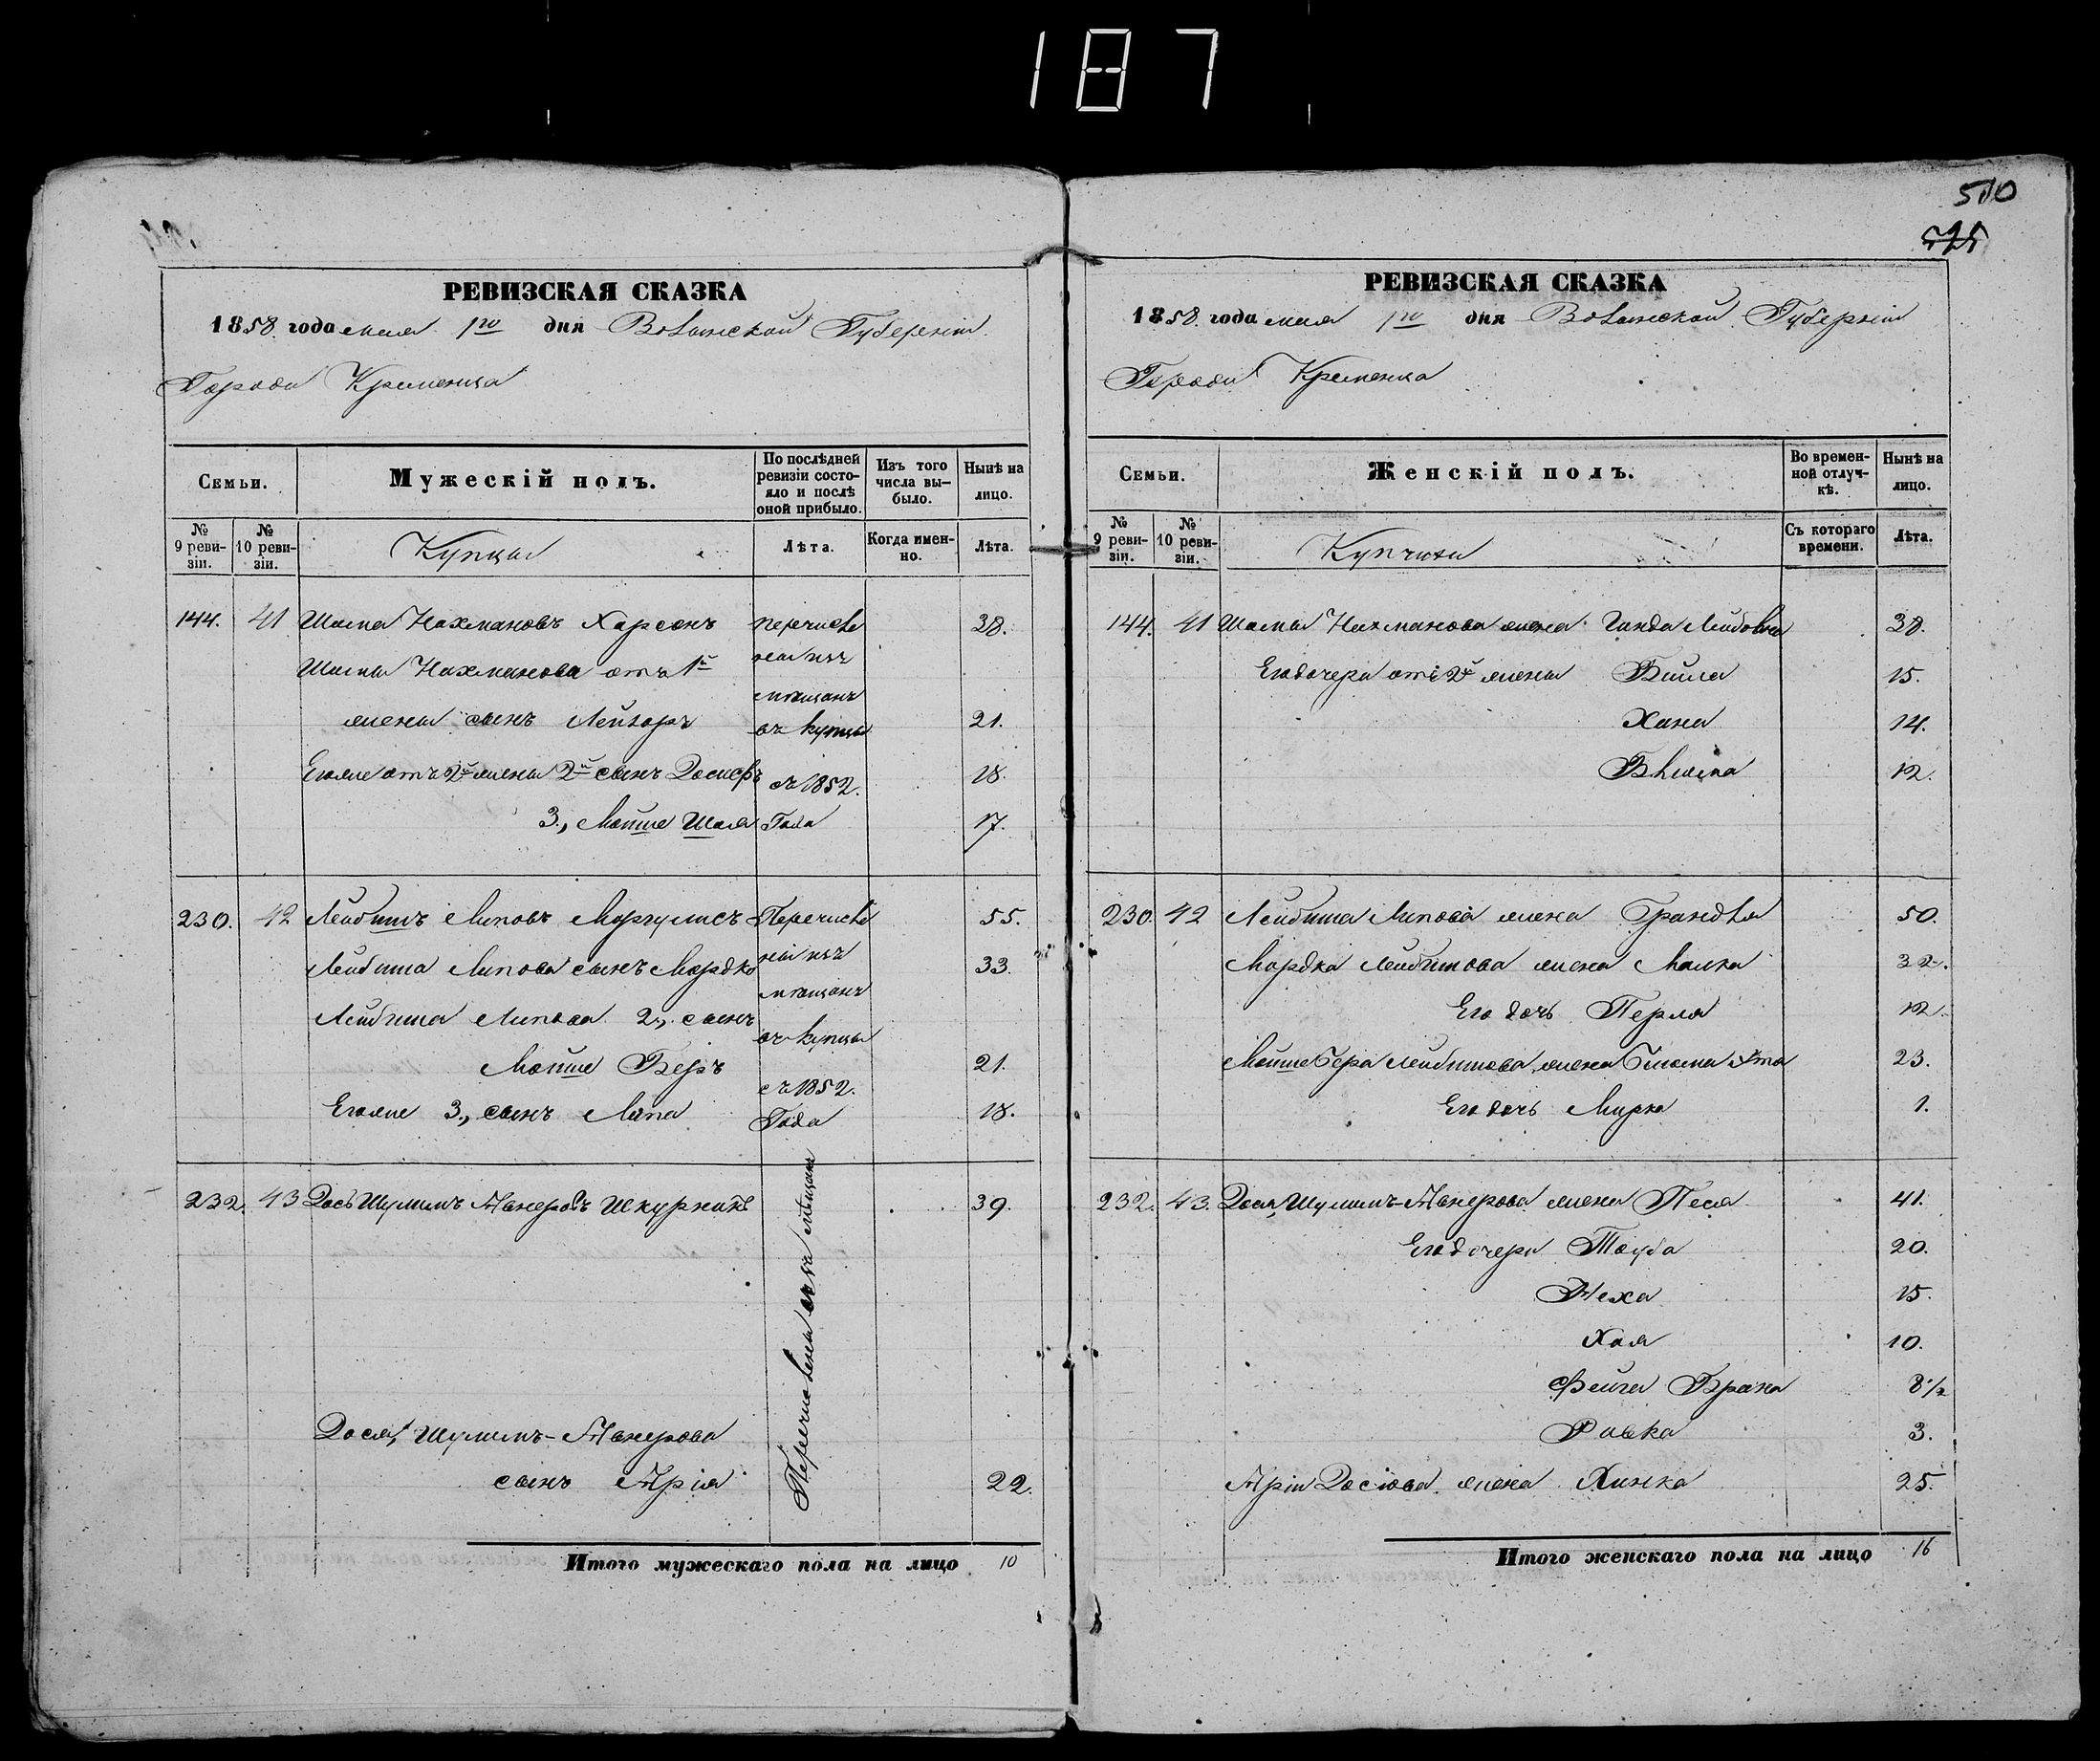 187
510
525
РЕВИЗСКАЯ СКАЗКА
1858 года мая 1го дня Волынской Губерніи
Города Кременца
Семьи.
Мужескій полъ.
По послѣдней ревизіи состояло и послѣ оной прибыло.
Изъ того числа выбыло.
Нынѣ на лицо.
№ 9 ревизіи.
№ 10 ревизіи.
Купцы
Лѣта.
Когда именно.
Лѣта.
144. 41 Шама Нахмановъ Харсонъ перечисле 38.
Шамы Нахманова отъ 1й ны изъ
мещанъ
жены сынъ Лейзоръ въ купцы 21.
Его же отъ 2й жены 2й сынъ Іосифъ съ 1852. 18.
3., Мойше Шая Года 17.
230. 42 Лейбишъ Липовъ Маргулисъ Перечисле 55.
Лейбиша Липова сынъ Мордко ны изъ 33.
мещанъ
Лейбиша Липова 2., сынъ
въ купцы
Мойше Беръ 21.
съ 1852.
Его же 3., сынъ Липа Года 18.
232. 43 Шулимъ 39.
Шулимъ
сынъ Арія 22.
Итого мужескаго пола на лицо 10
РЕВИЗСКАЯ СКАЗКА
1858. года мая 1го дня Волынской Губерніи
Города Кременца
Семьи.
Женскій полъ.
Во временной отлучкѣ.
Нынѣ на лицо.
№ 9 ревизіи.
№ 10 ревизіи.
Купчихи
Съ котораго времени.
Лѣта.
144. 41 Шамы Нахманова жена Гинда Лейбовна 38.
Его дочери отъ 2й жены Бейла 15.
Хана 14.
Блюма 12.
230. 42 Лейбиша Липова жена Грандля 50.
Мордка Лейбишова жена Малка 32.
Его дочь Перля 12.
Мойше Бера Лейбишова жена 23.
Его дочь Мирка 1.
232. 43. Шулимъ жена Песя 41.
Его дочери Тауба 20.
Неха 15.
Хая 10.
Фейга Брана 8 1/2
Ривка 3.
Аріи жена Хинка 25.
Итого женскаго пола на лицо 16